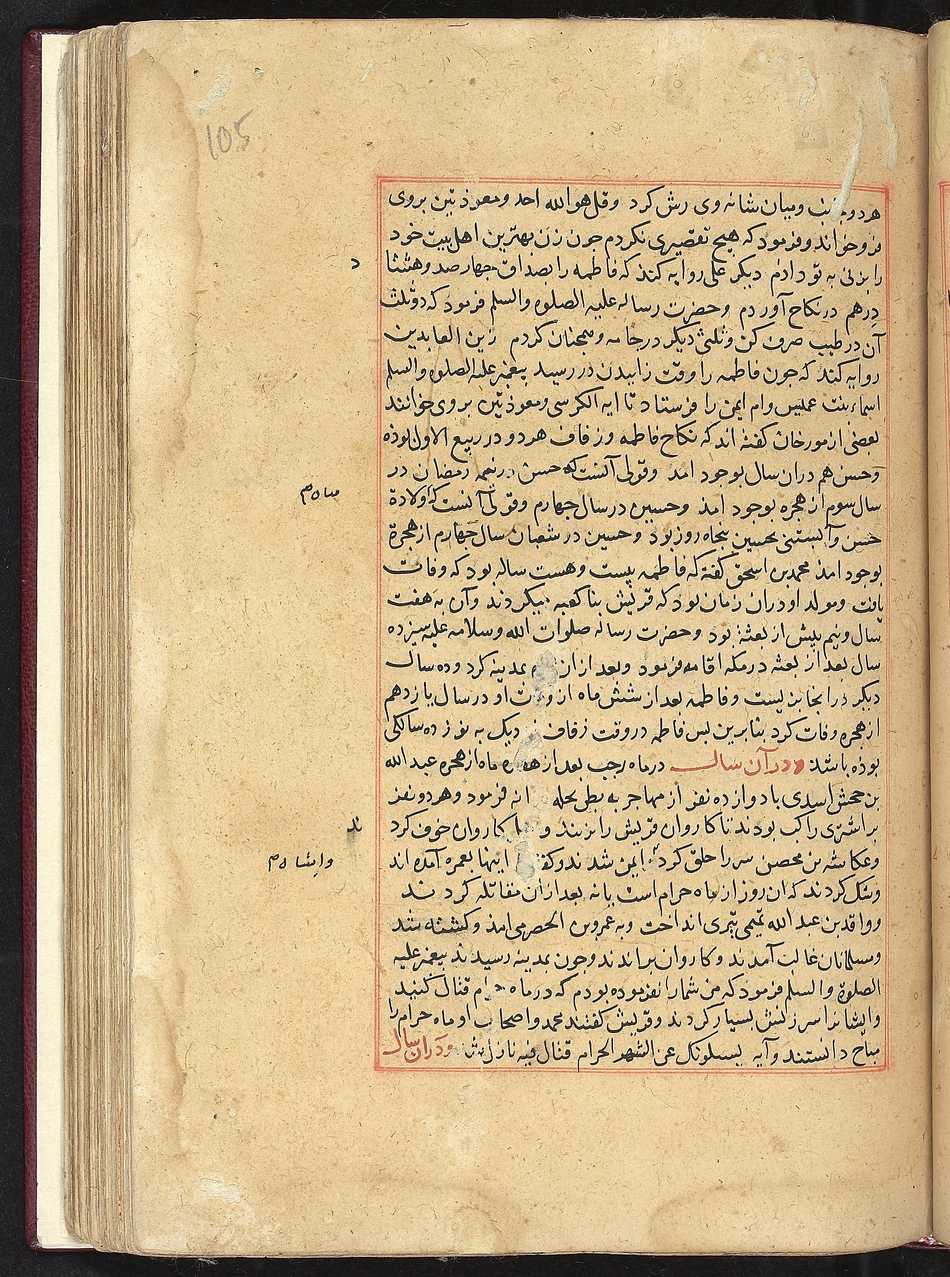 105
هر دو جانب و میان شانه وی رش کرد و قل هو الله احد و معوذتین بروی
فرو خواند و فرمود که هیچ تقصیری نکردم جون زن بهترین اهل بیت خود
را بزنی به تو دادم دیکر علی روایه کند که فاطمه را بصداق جهار صد و هشتا
د
درهم در نکاح آوردم و حضرت رساله علیه الصلوه والسلم فرمود که دو ثلث
آن در طیب صرف کن و ثلثی دیکر در جامه و همجنان کردم زین العابدین
روایه کند که جون فاطمه را وقت زاییدن در رسید پیغمبر علیه الصلوه والسلم
اسماء بنت عمیس وام ایمن را فرستاد تا ایه الکرسی و معوذتین بروی خوانند
بعضی از مورخان کفته اند که نکاح فاطمه و زفاف هر دو در ربیع الاول بوذه
و حسن هم دران سال بوجود امد و قولی آنست که حسن در نیمه رمضان در
سال سوم از هجره بوجود امذ و حسین در سال جهارم و قولی آنست که ولادة
حسن و آبستنی بحسین بنجاه روز بوذ و حسین در شعبان سال جهارم از هجرة
بوجود امذ محمد بن اسحق کفته که فاطمه بیست و هست ساله بود که وفات
یافت و مولد او دران زمان بود که قریش بنا کعبه میکردند و آن به هفت
سال و نیم پیش از بعثة بود و حضرت رساله صلوات الله وسلامه علیه سیزده
سال بعد از بعثه در مکه اقامه فرمود و بعد از ان بمدینه کرد و ده سال
دیکر در انجا بزیست و فاطمه بعد از شش ماه از وفات او در سال یازدهم
از هجره وفات کرد بنابرین بس فاطمه در وقت زفاف نزدیک به نوزده سالکی
بوذه باشد و در آن سال در ماه رجب بعد از هفده ماه از هجره عبد الله
بن جحش اسدی با دوازده نفر از مهاجر به بطن نخله روانه فرمود و هر دو نفر
بر اشتری راکب بودند تا کاروان قریش را بزنند و اهل کاروان خوف کرد
ند
و عکاشه بن محصن سر را حلق کرد ایمن شدند و کفتند اینها بعمره آمده اند
وایشان
و شک کردند که ان روز از ماه حرام است یا نه بعد ازان مقاتله کردند
و واقد بن عبد الله تمیمی تیری انداخت و به عمرو بن الحضرمی امذ و کشته شد
و مسلمانان غالب آمدند و کاروان براندند و جون بمدینه رسیدند پیغمبر علیه
الصلوة والسلم فرمود که من شما را نفرموده بودم که در ماه حرام قتال کنید
وایشانرا سرزنش بسیار کردند و قریش کفتند محمد و اصحاب او ماه حرام را
مباح دانستند و آیه یسلونک عن الشهر الحرام قتال فیه نازل شد و دران سال